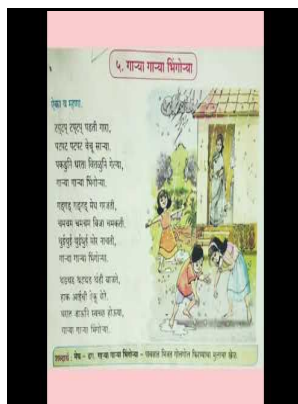 ५. गाऱ्या गाऱ्या भिंगोऱ्या
ऐका व म्हणा.
टपटप् टपटप् पडती गारा,
पटपट पटपट वेचू साऱ्या.
पकडुनि धरता वितळुनि गेल्या,
गाऱ्या गाऱ्या भिंगोऱ्या.
गडगड् गडगड् मेघ गरजती,
चमचम चमचम विजा चमकती.
थुईथुई थुईथुई मोर नाचती,
गाऱ्या गाऱ्या भिंगोऱ्या.
घंटी वाजते,
हाक आईची ऐकू येते.
घरात जाऊनि स्वच्छ होऊया,
गाऱ्या गाऱ्या भिंगोऱ्या.
शब्दार्थ : मेघ - ढग. गाऱ्या गाऱ्या भिंगोऱ्या - पावसात भिजत गोलगोल फिरण्याचा मुलांचा खेळ.